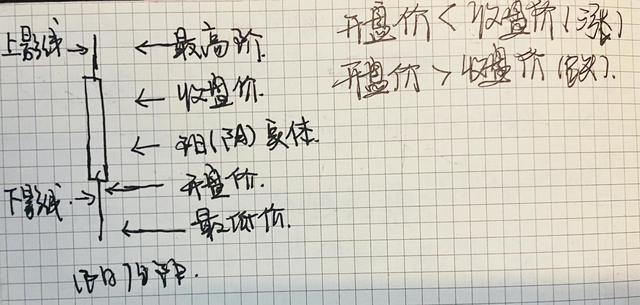 上影线
最高价
收盘价
阳(阴)实体
开盘价
下影线
最低价
开盘价 < 收盘价 (涨)
开盘价 > 收盘价 (跌).